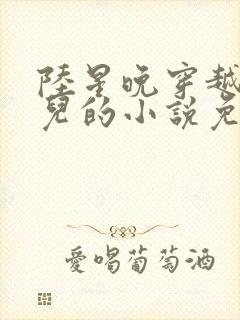 陸星晚穿越
兒的小說免
愛喝葡萄酒